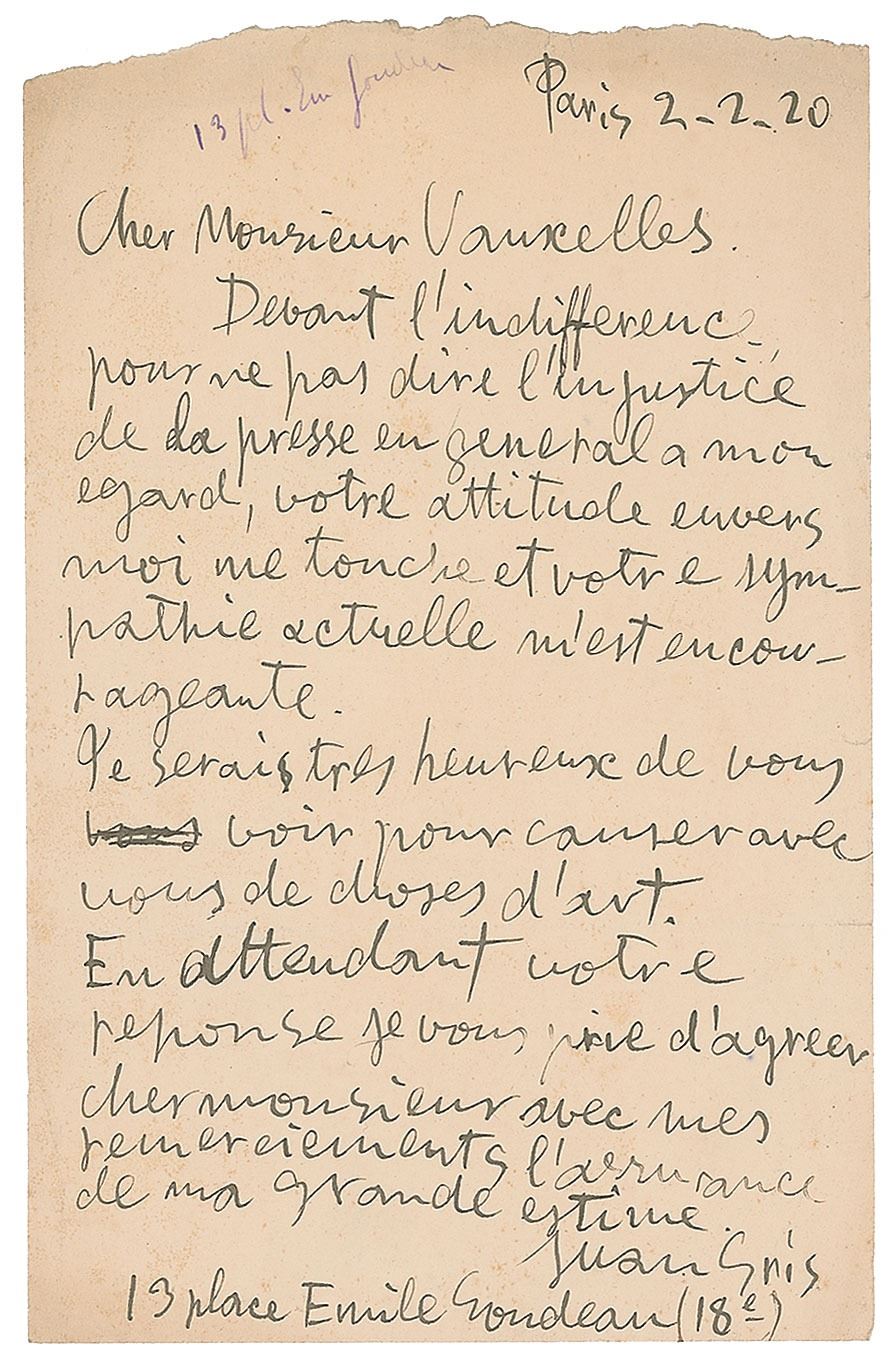 13 pl. Em Goudeau
Paris 2-2-20
Cher Monsieur Vauxelles.
Devant l'indifference
pour ne pas dire l'injustice
de la presse en general a mon
egard, votre attitude envers
moi me touche et votre sym-
pathie actuelle m'est encou-
rageante.
Je serais tres heureux de vous
vous voir pour causer avec
vous de choses d'art.
En attendant votre
reponse je vous prie d'agreer
cher monsieur avec mes
remerciements l'assurance
de ma grande estime.
Juan Gris
13 place Emile Goudeau (18e)